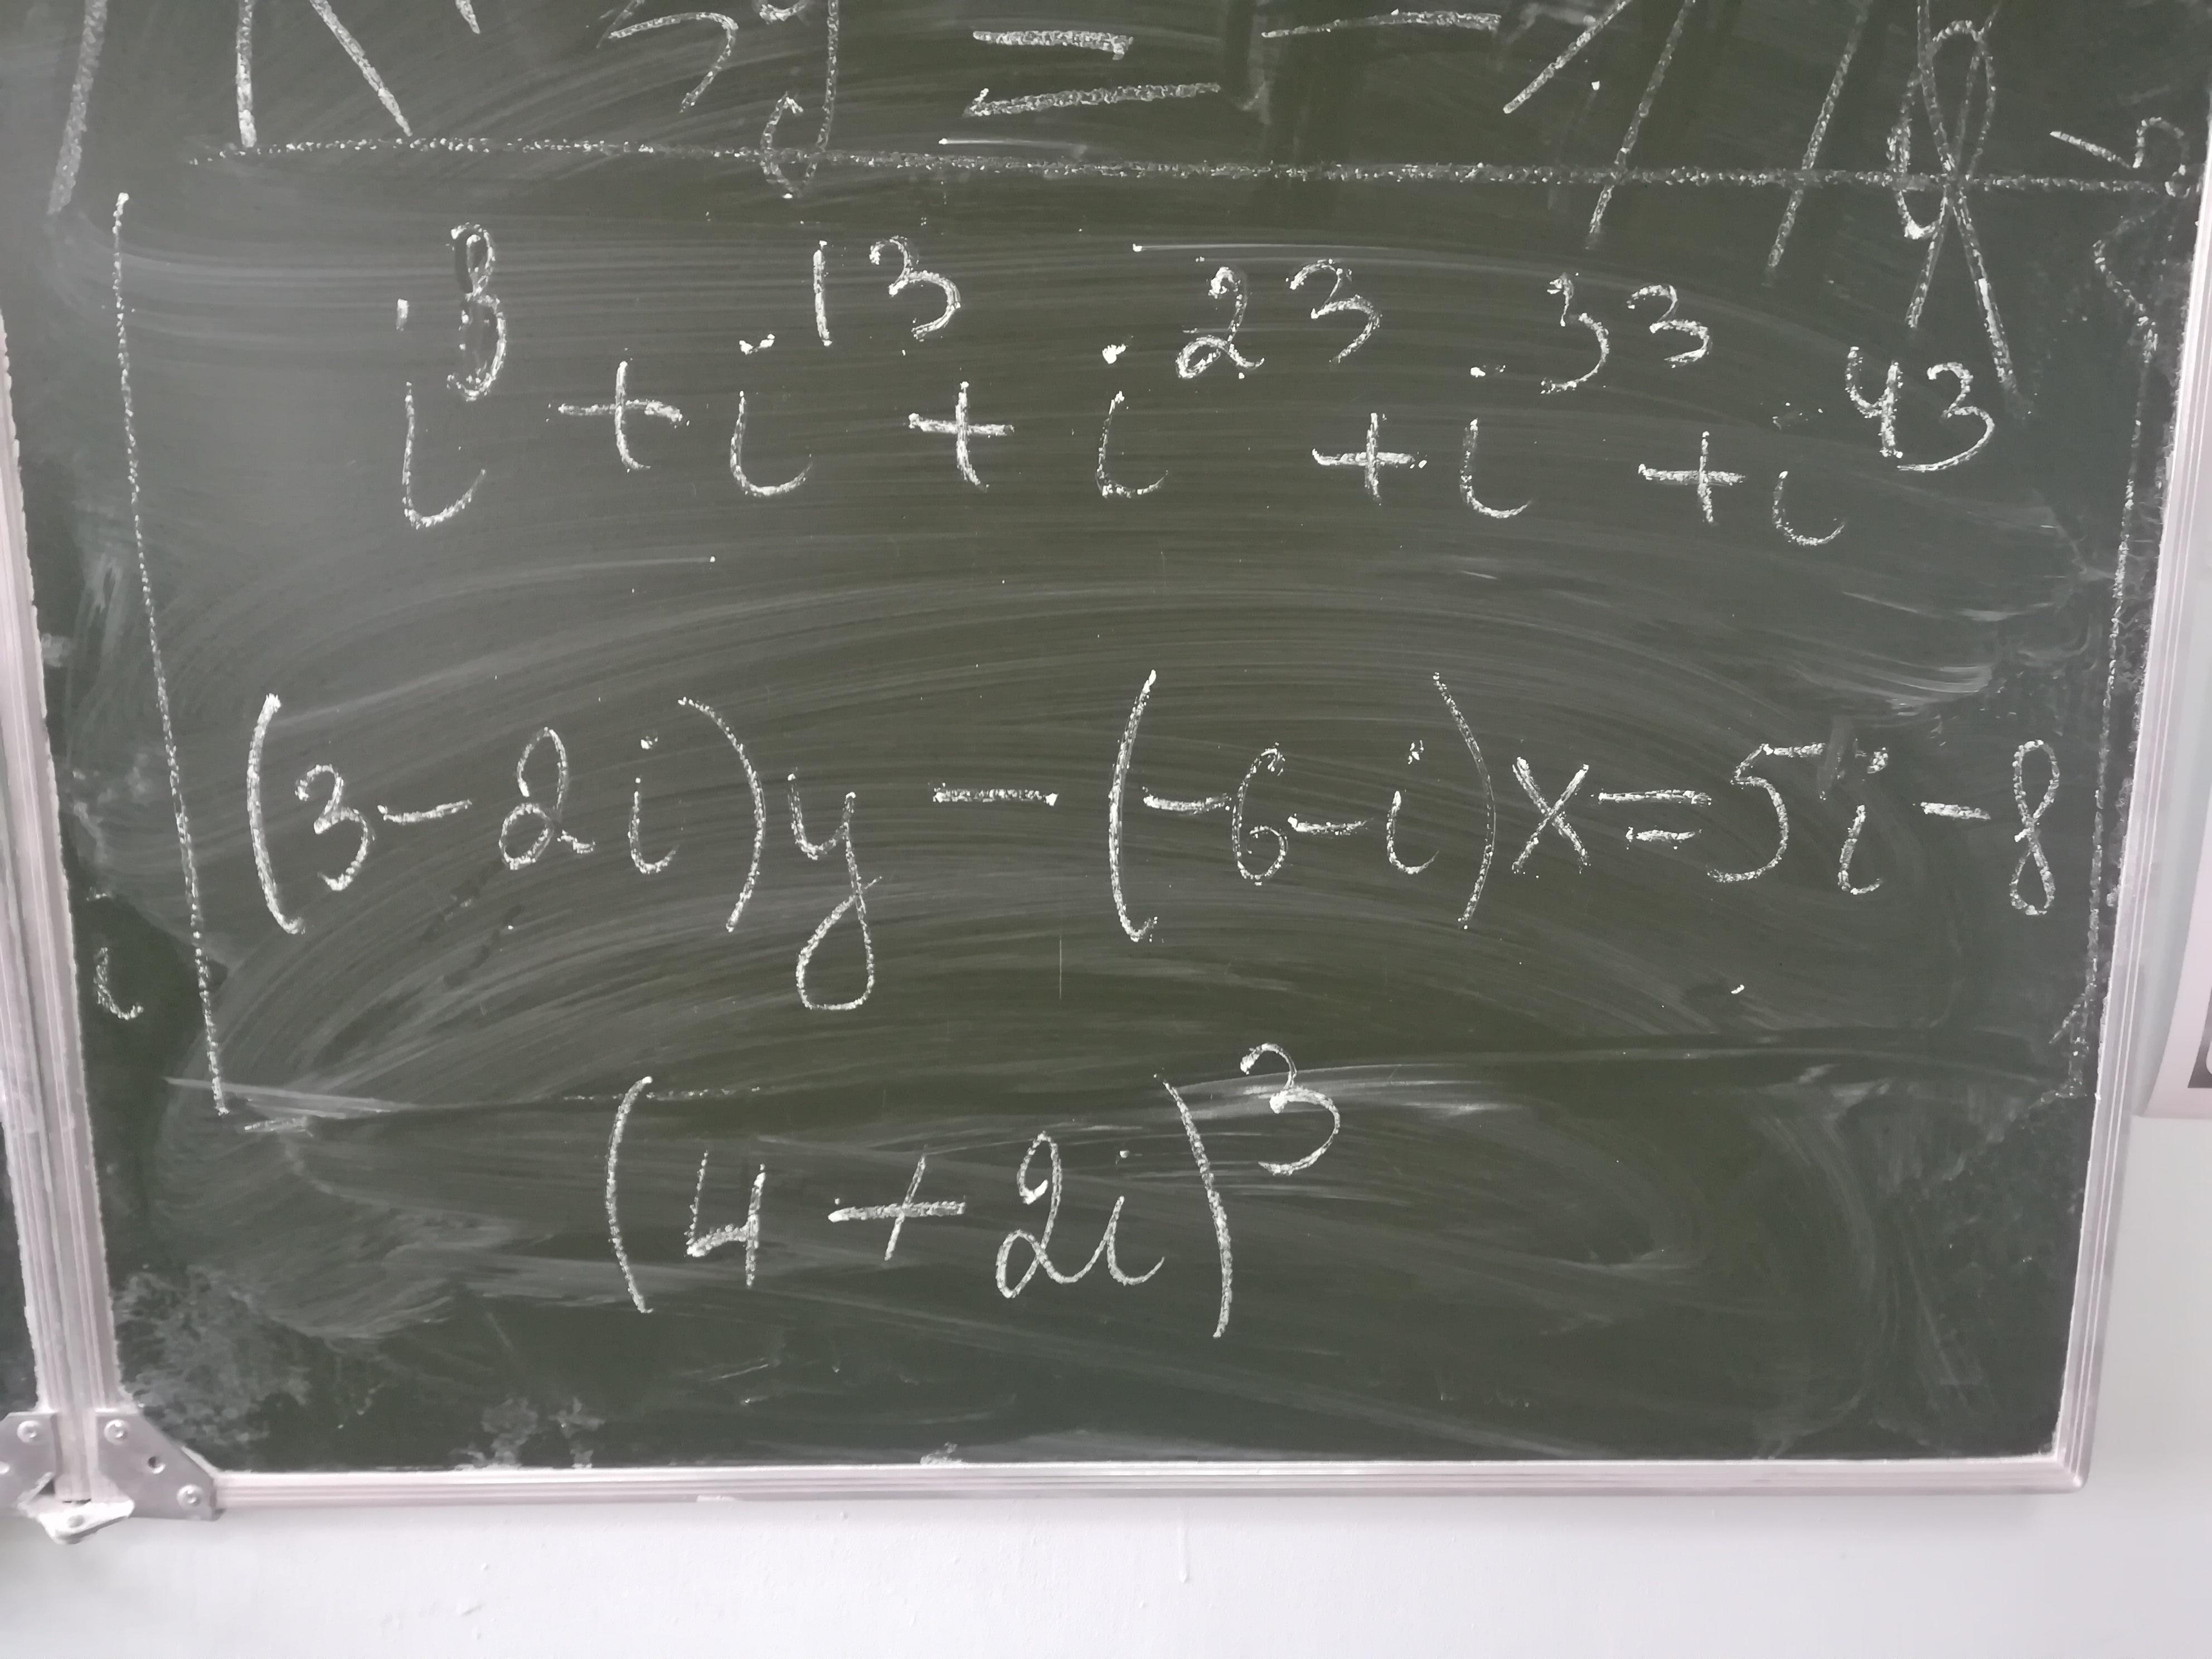 i³ + i¹³ + i²³ + i³³ + i⁴³
(3-2i)y - (-6-i)x=5i-8
(4+2i)³